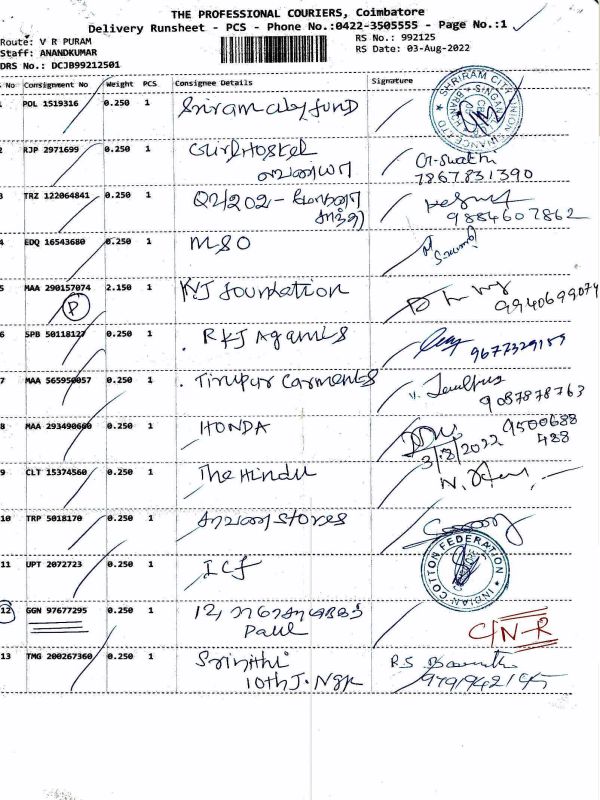 THE PROFESSIONAL COURIERS, Coimbatore
Delivery Runsheet - PCS - Phone No.:0422-3505555 - Page No.:1
Route: V R PURAM
RS No.: 992125
Staff: ANANDKUMAR
RS Date: 03-Aug-2022
DRS No.: DCJB99212501
No Consignment No Weight PCS Consignee Details Signature
POL 1519316 0.250 1 Sriram city fund
SHRIRAM CITY UNION FINANCE LTD
2 RJP 2971699 0.250 1 Girl Hostel
G. Swathi
7867831390
3 TRZ 122064841 0.250 1 Q2/202 -
9884607862
4 EDQ 16543680 0.250 1 MSO
5 MAA 290157074 2.150 1 KNJ foundation
P
9940699074
6 SPB 50118127 0.250 1 RKJ Agamts
9677329159
7 MAA 565950057 0.250 1 Tirupur Garments
9087878763
8 MAA 293490660 0.250 1 HONDA
9500688
488
3/8/2022
9 CLT 15374560 0.250 1 The Hindu
10 TRP 5018170 0.250 1 சரவணா Stores
11 UPT 2072723 0.250 1 ICF
INDIAN COTTON FEDERATION
12 GGN 97677295 0.250 1 12,
Paul
C/N-R
13 TMG 200267360 0.250 1 Srinithi
10th J. Ngr
R.S